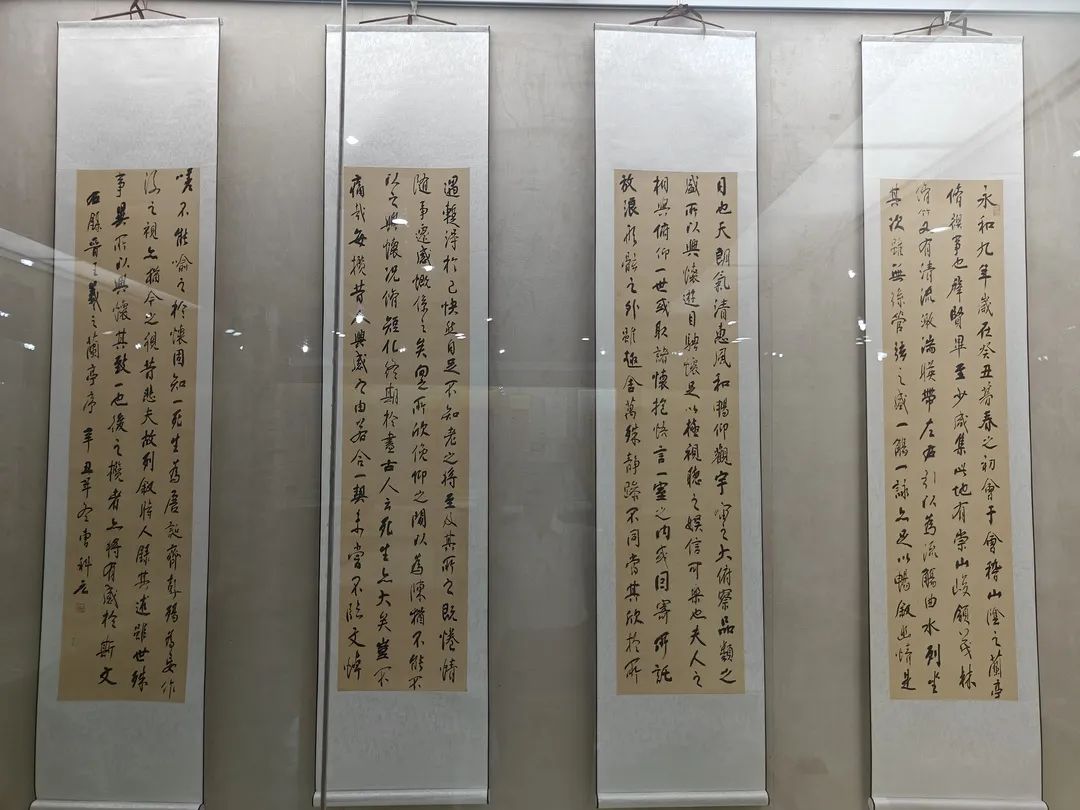 永和九年歲在癸丑暮春之初會于會稽山陰之蘭亭
脩禊事也羣賢畢至少咸集此地有崇山峻領茂林
脩竹又有清流激湍暎帶左右引以為流觴曲水列坐
其次雖無絲管弦之盛一觴一詠亦足以暢叙幽情是
日也天朗氣清惠風和暢仰觀宇宙之大俯察品類之
盛所以興懷遊目騁懷足以極視聽之娛信可樂也夫人之
相與俯仰一世或取諸懷抱悟言一室之內或因寄所託
放浪形骸之外雖趣舍萬殊靜躁不同當其欣於所
遇暫得於己快然自足不知老之將至及其所之既惓情
隨事遷感慨係之矣向之所欣俛仰之閒以為陳猶不能不
以之興懷況脩短化終期於盡古人云死生亦大矣豈不
痛哉每攬昔人興感之由若合一契未嘗不臨文悼
嗟不能喻之於懷固知一死生為虛誕齊彭殤為妄作
後之視亦猶今之視昔悲夫故列叙時人錄其述雖世殊
事異所以興懷其致一也後之攬者亦將有感於斯文
右錄晉王羲之蘭亭序 辛丑年冬曹科